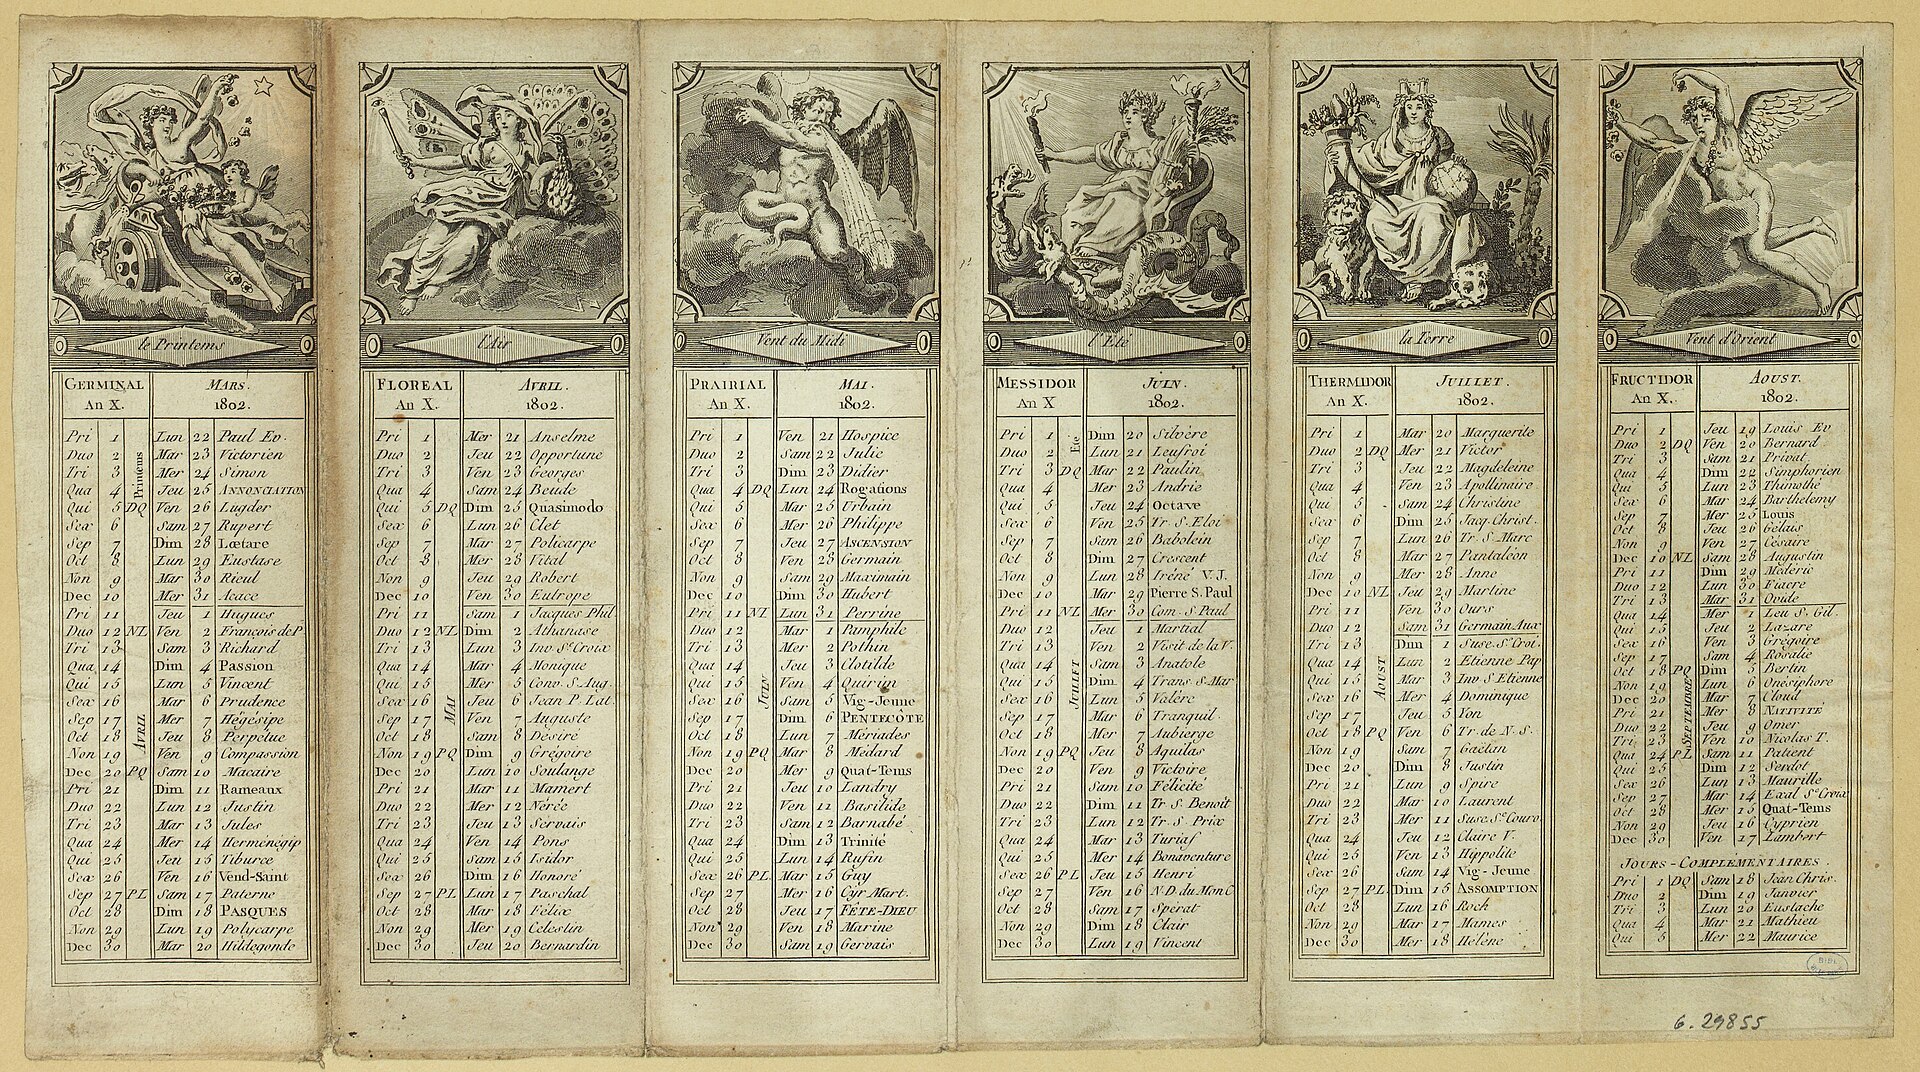 le Printems
GERMINAL MARS.
An X. 1802.
Printems
AVRIL
Pri 1 Lun 22 Paul Ev.
Duo 2 Mar 23 Victorien
Tri 3 Mer 24 Simon
Qua 4 Jeu 25 ANNONCIATION
Qui 5 DQ Ven 26 Lugder
Sex 6 Sam 27 Rupert
Sep 7 Dim 28 Lœtare
Oct 8 Lun 29 Eustase
Non 9 Mar 30 Rieul
Dec 10 Mer 31 Acace
Pri 11 Jeu 1 Hugues
Duo 12 NL Ven 2 François de P
Tri 13 Sam 3 Richard
Qua 14 Dim 4 Passion
Qui 15 Lun 5 Vincent
Sex 16 Mar 6 Prudence
Sep 17 Mer 7 Hégésipe
Oct 18 Jeu 8 Perpétue
Non 19 Ven 9 Compassion
Dec 20 PQ Sam 10 Macaire
Pri 21 Dim 11 Rameaux
Duo 22 Lun 12 Justin
Tri 23 Mar 13 Jules
Qua 24 Mer 14 Herménégip
Qui 25 Jeu 15 Tiburce
Sex 26 Ven 16 Vend-Saint
Sep 27 PL Sam 17 Paterne
Oct 28 Dim 18 PASQUES
Non 29 Lun 19 Polycarpe
Dec 30 Mar 20 Hildegonde
l'Air
FLOREAL AVRIL.
An X. 1802.
MAI
Pri 1 Mer 21 Anselme
Duo 2 Jeu 22 Opportune
Tri 3 Ven 23 Georges
Qua 4 Sam 24 Beude
Qui 5 DQ Dim 25 Quasimodo
Sex 6 Lun 26 Clet
Sep 7 Mar 27 Policarpe
Oct 8 Mer 28 Vital
Non 9 Jeu 29 Robert
Dec 10 Ven 30 Eutrope
Pri 11 Sam 1 Jacques Phil
Duo 12 NL Dim 2 Athanase
Tri 13 Lun 3 Inv Sᵗᵉ Croix
Qua 14 Mar 4 Monique
Qui 15 Mer 5 Conv. S. Aug.
Sex 16 Jeu 6 Jean P. Lat.
Sep 17 Ven 7 Auguste
Oct 18 Sam 8 Désiré
Non 19 PQ Dim 9 Grégoire
Dec 20 Lun 10 Soulange
Pri 21 Mar 11 Mamert
Duo 22 Mer 12 Nérée
Tri 23 Jeu 13 Servais
Qua 24 Ven 14 Pons
Qui 25 Sam 15 Isidor
Sex 26 Dim 16 Honoré
Sep 27 PL Lun 17 Paschal
Oct 28 Mar 18 Félix
Non 29 Mer 19 Celestin
Dec 30 Jeu 20 Bernardin
Vent du Midi
PRAIRIAL MAI.
An X. 1802.
JUIN
Pri 1 Ven 21 Hospice
Duo 2 Sam 22 Julie
Tri 3 Dim 23 Didier
Qua 4 DQ Lun 24 Rogations
Qui 5 Mar 25 Urbain
Sex 6 Mer 26 Philippe
Sep 7 Jeu 27 ASCENSION
Oct 8 Ven 28 Germain
Non 9 Sam 29 Maximain
Dec 10 Dim 30 Hubert
Pri 11 NL Lun 31 Perrine
Duo 12 Mar 1 Pamphile
Tri 13 Mer 2 Pothin
Qua 14 Jeu 3 Clotilde
Qui 15 Ven 4 Quirin
Sex 16 Sam 5 Vig-Jeune
Sep 17 Dim 6 PENTECÔTE
Oct 18 Lun 7 Mériades
Non 19 PQ Mar 8 Médard
Dec 20 Mer 9 Quat-Tems
Pri 21 Jeu 10 Landry
Duo 22 Ven 11 Basilide
Tri 23 Sam 12 Barnabé
Qua 24 Dim 13 Trinité
Qui 25 Lun 14 Rufin
Sex 26 PL Mar 15 Guy
Sep 27 Mer 16 Cyr Mart.
Oct 28 Jeu 17 FÊTE-DIEU
Non 29 Ven 18 Marine
Dec 30 Sam 19 Gervais
l'Eté
MESSIDOR JUIN.
An X 1802.
Eté
JUILLET
Pri 1 Dim 20 Silvère
Duo 2 Lun 21 Leufroi
Tri 3 DQ Mar 22 Paulin
Qua 4 Mer 23 Andrie
Qui 5 Jeu 24 Octave
Sex 6 Ven 25 Tr. S. Eloi
Sep 7 Sam 26 Babolein
Oct 8 Dim 27 Crescent
Non 9 Lun 28 Iréné V.J.
Dec 10 Mar 29 Pierre S. Paul
Pri 11 NL Mer 30 Com. S. Paul
Duo 12 Jeu 1 Martial
Tri 13 Ven 2 Visit de la V.
Qua 14 Sam 3 Anatole
Qui 15 Dim 4 Trans. S. Mar
Sex 16 Lun 5 Valère
Sep 17 Mar 6 Tranquil.
Oct 18 Mer 7 Aubierge
Non 19 PQ Jeu 8 Aquilas
Dec 20 Ven 9 Victoire
Pri 21 Sam 10 Félicité
Duo 22 Dim 11 Tr. S. Benoît
Tri 23 Lun 12 Tr. S. Prix
Qua 24 Mar 13 Turiaf
Qui 25 Mer 14 Bonaventure
Sex 26 PL Jeu 15 Henri
Sep 27 Ven 16 N.D. du Mon C
Oct 28 Sam 17 Spérat
Non 29 Dim 18 Clair
Dec 30 Lun 19 Vincent
la Terre
THERMIDOR JUILLET.
An X. 1802.
AOUST
Pri 1 Mar 20 Marguerite
Duo 2 DQ Mer 21 Victor
Tri 3 Jeu 22 Magdeleine
Qua 4 Ven 23 Apollinaire
Qui 5 Sam 24 Christine
Sex 6 Dim 25 Jacq. Christ.
Sep 7 Lun 26 Tr. S. Marc
Oct 8 Mar 27 Pantaléon
Non 9 Mer 28 Anne
Dec 10 NL Jeu 29 Martine
Pri 11 Ven 30 Ours
Duo 12 Sam 31 Germain Aux
Tri 13 Dim 1 Susc. Sᵗ Croi.
Qua 14 Lun 2 Etienne Pap
Qui 15 Mar 3 Inv S Etienne
Sex 16 Mer 4 Dominique
Sep 17 Jeu 5 Yon
Oct 18 PQ Ven 6 Tr. de N.S.
Non 19 Sam 7 Gaëtan
Dec 20 Dim 8 Justin
Pri 21 Lun 9 Spire
Duo 22 Mar 10 Laurent
Tri 23 Mer 11 Susc. Sᵗ Couro.
Qua 24 Jeu 12 Claire V.
Qui 25 Ven 13 Hippolite
Sex 26 Sam 14 Vig-Jeune
Sep 27 PL Dim 15 ASSOMPTION
Oct 28 Lun 16 Roch
Non 29 Mar 17 Mames
Dec 30 Mer 18 Hélène
Vent d'Orient
FRUCTIDOR AOUST.
An X. 1802.
SEPTEMBRE
Pri 1 Jeu 19 Louis Ev
Duo 2 DQ Ven 20 Bernard
Tri 3 Sam 21 Privat
Qua 4 Dim 22 Simphorien
Qui 5 Lun 23 Thimothé
Sex 6 Mar 24 Barthelemy
Sep 7 Mer 25 Louis
Oct 8 Jeu 26 Gelais
Non 9 Ven 27 Césaire
Dec 10 NL Sam 28 Augustin
Pri 11 Dim 29 Médéric
Duo 12 Lun 30 Fiacre
Tri 13 Mar 31 Ovide
Qua 14 Mer 1 Leu S. Gil.
Qui 15 Jeu 2 Lazare
Sex 16 Ven 3 Grégoire
Sep 17 Sam 4 Rosalie
Oct 18 PQ Dim 5 Bertin
Non 19 Lun 6 Onésiphore
Dec 20 Mar 7 Cloud
Pri 21 Mer 8 NATIVITÉ
Duo 22 Jeu 9 Omer
Tri 23 Ven 10 Nicolas T.
Qua 24 PL Sam 11 Patient
Qui 25 Dim 12 Serdot
Sex 26 Lun 13 Maurille
Sep 27 Mar 14 Exal Sᵗᵉ Croix
Oct 28 Mer 15 Quat-Tems
Non 29 Jeu 16 Cyprien
Dec 30 Ven 17 Lambert
JOURS-COMPLEMENTAIRES.
Pri 1 DQ Sam 18 Jean Chris.
Duo 2 Dim 19 Janvier
Tri 3 Lun 20 Eustache
Qua 4 Mar 21 Mathieu
Qui 5 Mer 22 Maurice
G. 29855